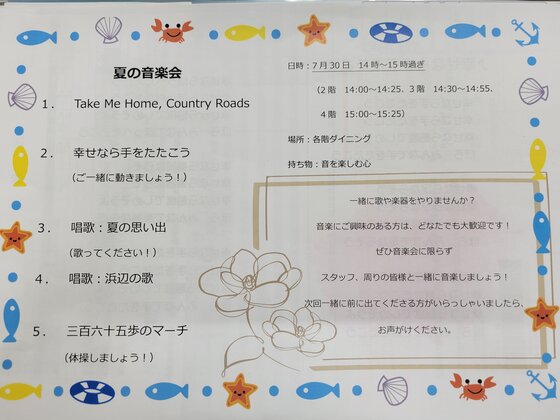 夏の音楽会
1. Take Me Home, Country Roads
2. 幸せなら手をたたこう
(ご一緒に動きましょう!)
3. 唱歌:夏の思い出
(歌ってください!)
4. 唱歌:浜辺の歌
5. 三百六十五歩のマーチ
(体操しましょう!)
日時:7月30日 14時~15時過ぎ
(2階 14:00~14:25、3階 14:30~14:55、
4階 15:00~15:25)
場所:各階ダイニング
持ち物:音を楽しむ心
一緒に歌や楽器をやりませんか?
音楽にご興味のある方は、どなたでも大歓迎です!
ぜひ音楽会に限らず
スタッフ、周りの皆様と一緒に音楽しましょう!
次回一緒に前に出てくださる方がいらっしゃいましたら、
お声がけください。